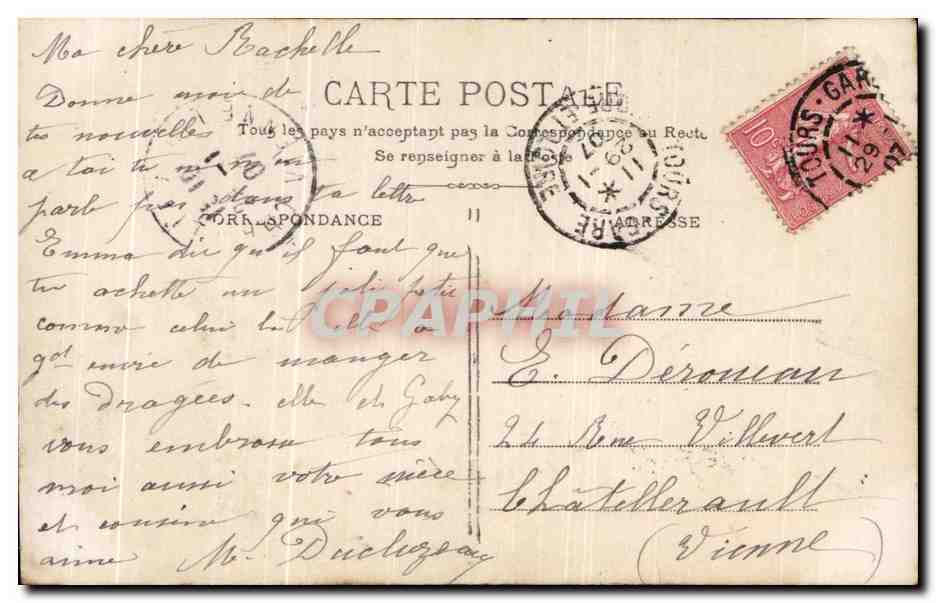 Ma chère Rachelle
Donne moi de
tes nouvelles
a toi tu ne m'en
parle pas dans ta lettre
Emma dit qu'il faut que
tu achette un joli petit
comme celui là elle a
gd envie de manger
des Dragées. elle et Gaby
vous embrasse tous
moi aussi votre nièce
et cousine qui vous
aime M. Ducluzeau
CARTE POSTALE
Tous les pays n'acceptant pas la Correspondance au Recto
Se renseigner à la Poste
CORRESPONDANCE
ADRESSE
Madame
E. Dérouneau
24 Rue Villevert
Châtellerault
(Vienne)
TOURS-GARE
11 * 
29 - 1
07
TOURS-GARE
11 *
29
07
10
CPAPHIL